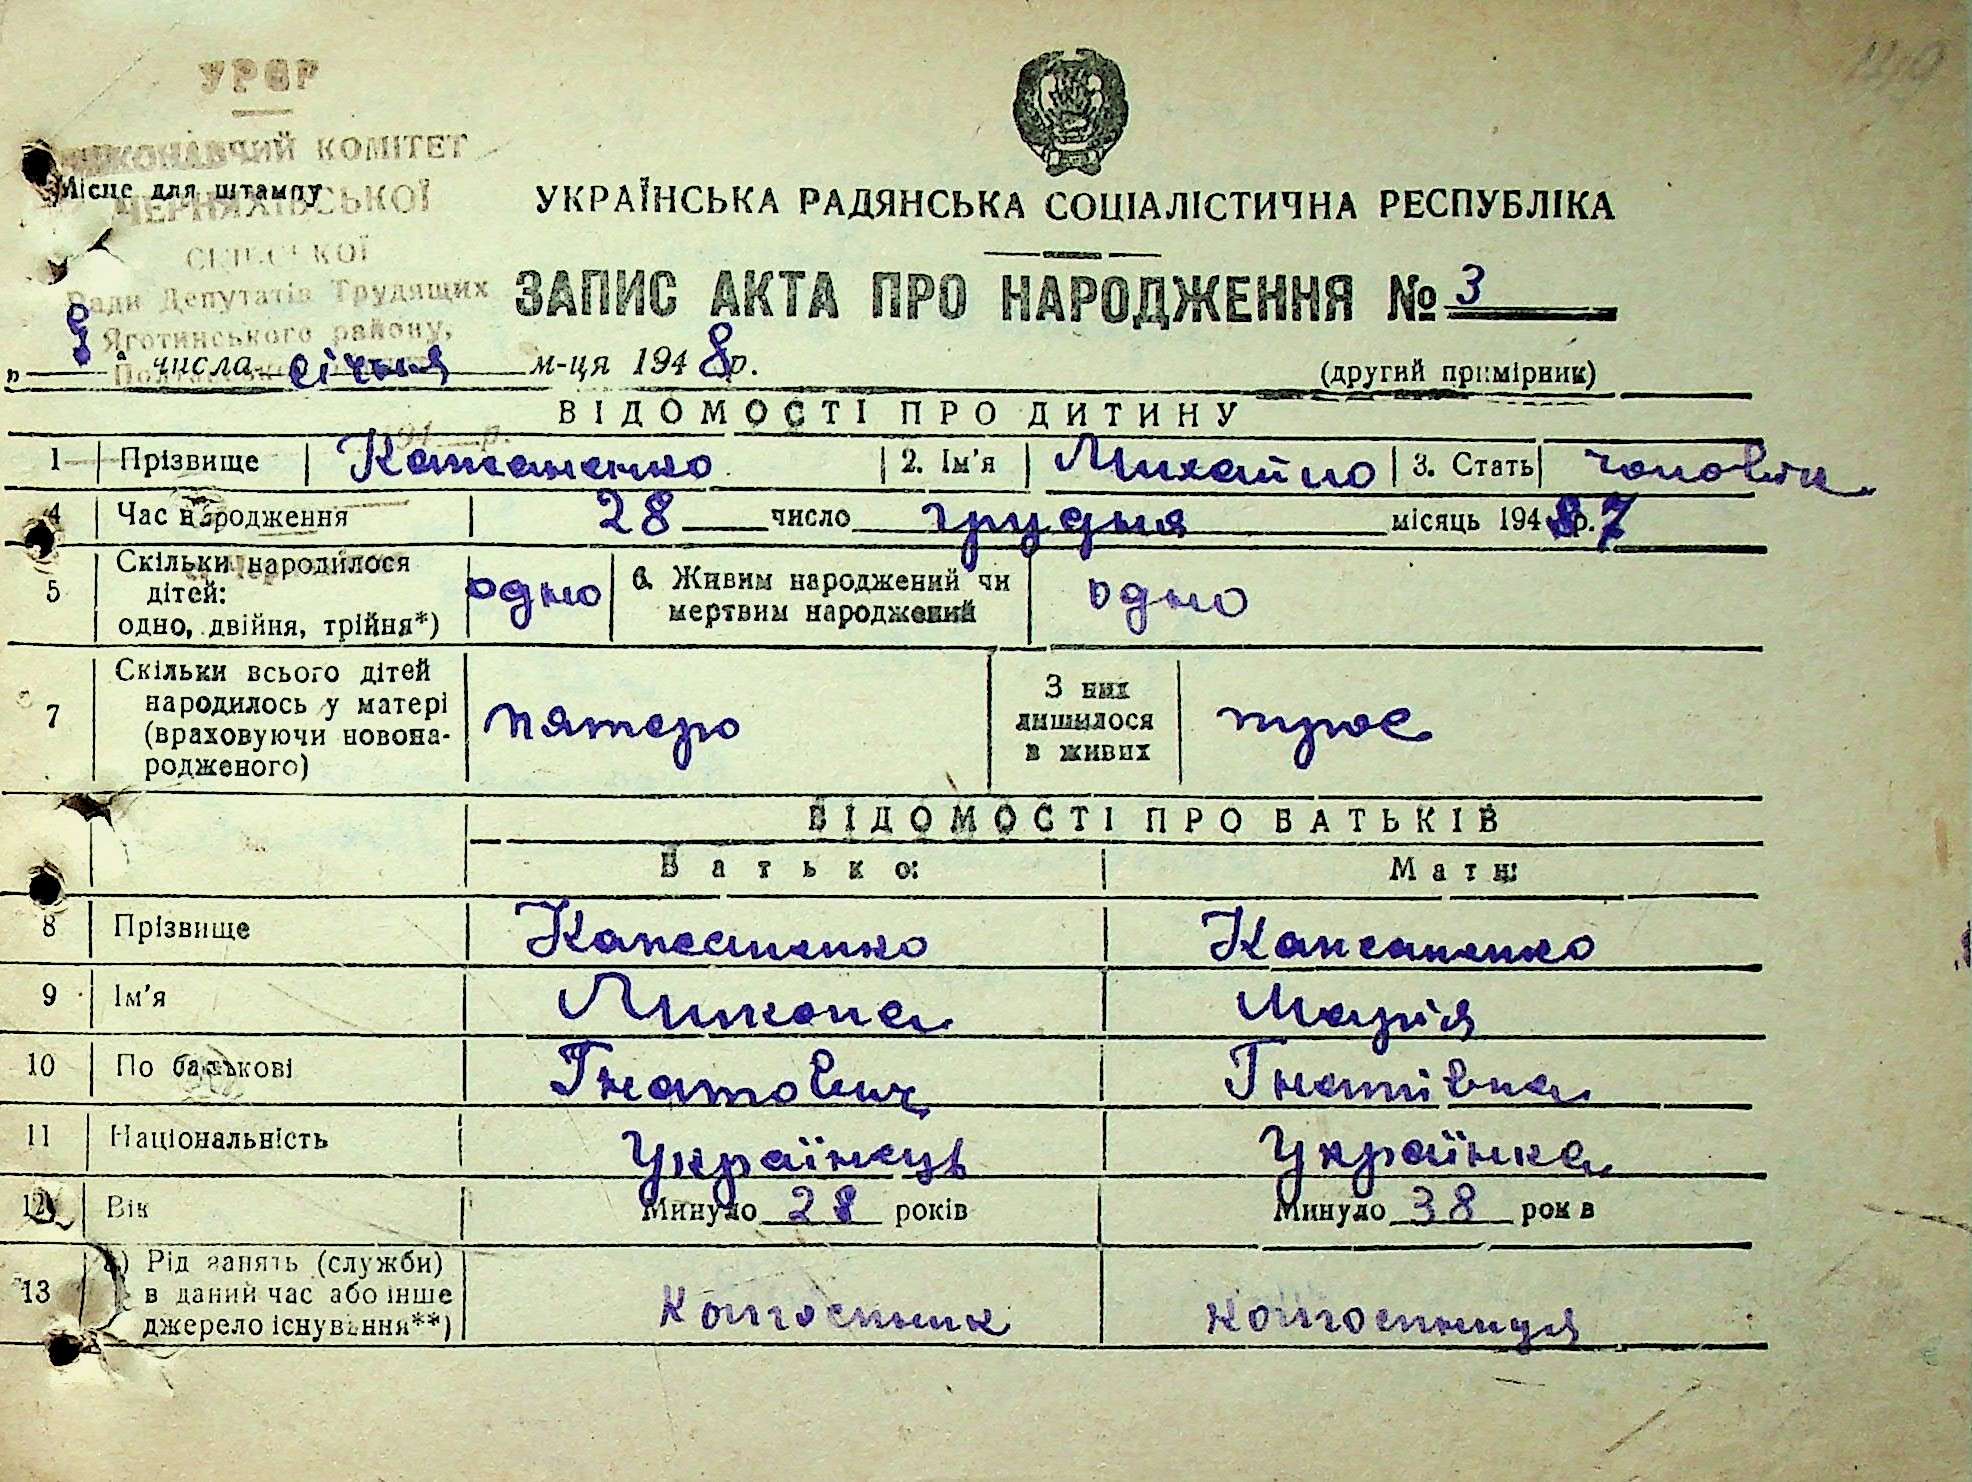 УРСР
ВИКОНАВЧИЙ КОМІТЕТ
Місце для штампу
ЧЕРНЯХІВСЬКОЇ
СІЛЬСЬКОЇ
Ради Депутатів Трудящих
Яготинського району,
УКРАЇНСЬКА РАДЯНСЬКА СОЦІАЛІСТИЧНА РЕСПУБЛІКА
ЗАПИС АКТА ПРО НАРОДЖЕННЯ № 3
„ 8 " числа січня м-ця 1948 р.
(другий примірник)
194 р.
ВІДОМОСТІ ПРО ДИТИНУ
1 Прізвище 2. Ім'я Михайло 3. Стать чоловіч
4 Час народження 28 число грудня місяць 194 р. 7
5 Скільки народилося дітей: одно, двійня, трійня*) одно 6. Живим народжений чи мертвим народжений одно
7 Скільки всього дітей народилось у матері (враховуючи новонародженого) пятеро З них лишилося в живих троє
ВІДОМОСТІ ПРО БАТЬКІВ
Батько: Мати:
8 Прізвище Капсаненко Капсаненко
9 Ім'я Марія
10 По батькові Гнатович Гнатівна
11 Національність Українець Українка
12 Вік Минуло 28 років Минуло 38 років
13 а) Рід занять (служби) в даний час або інше джерело існування**) колгоспник колгоспниця